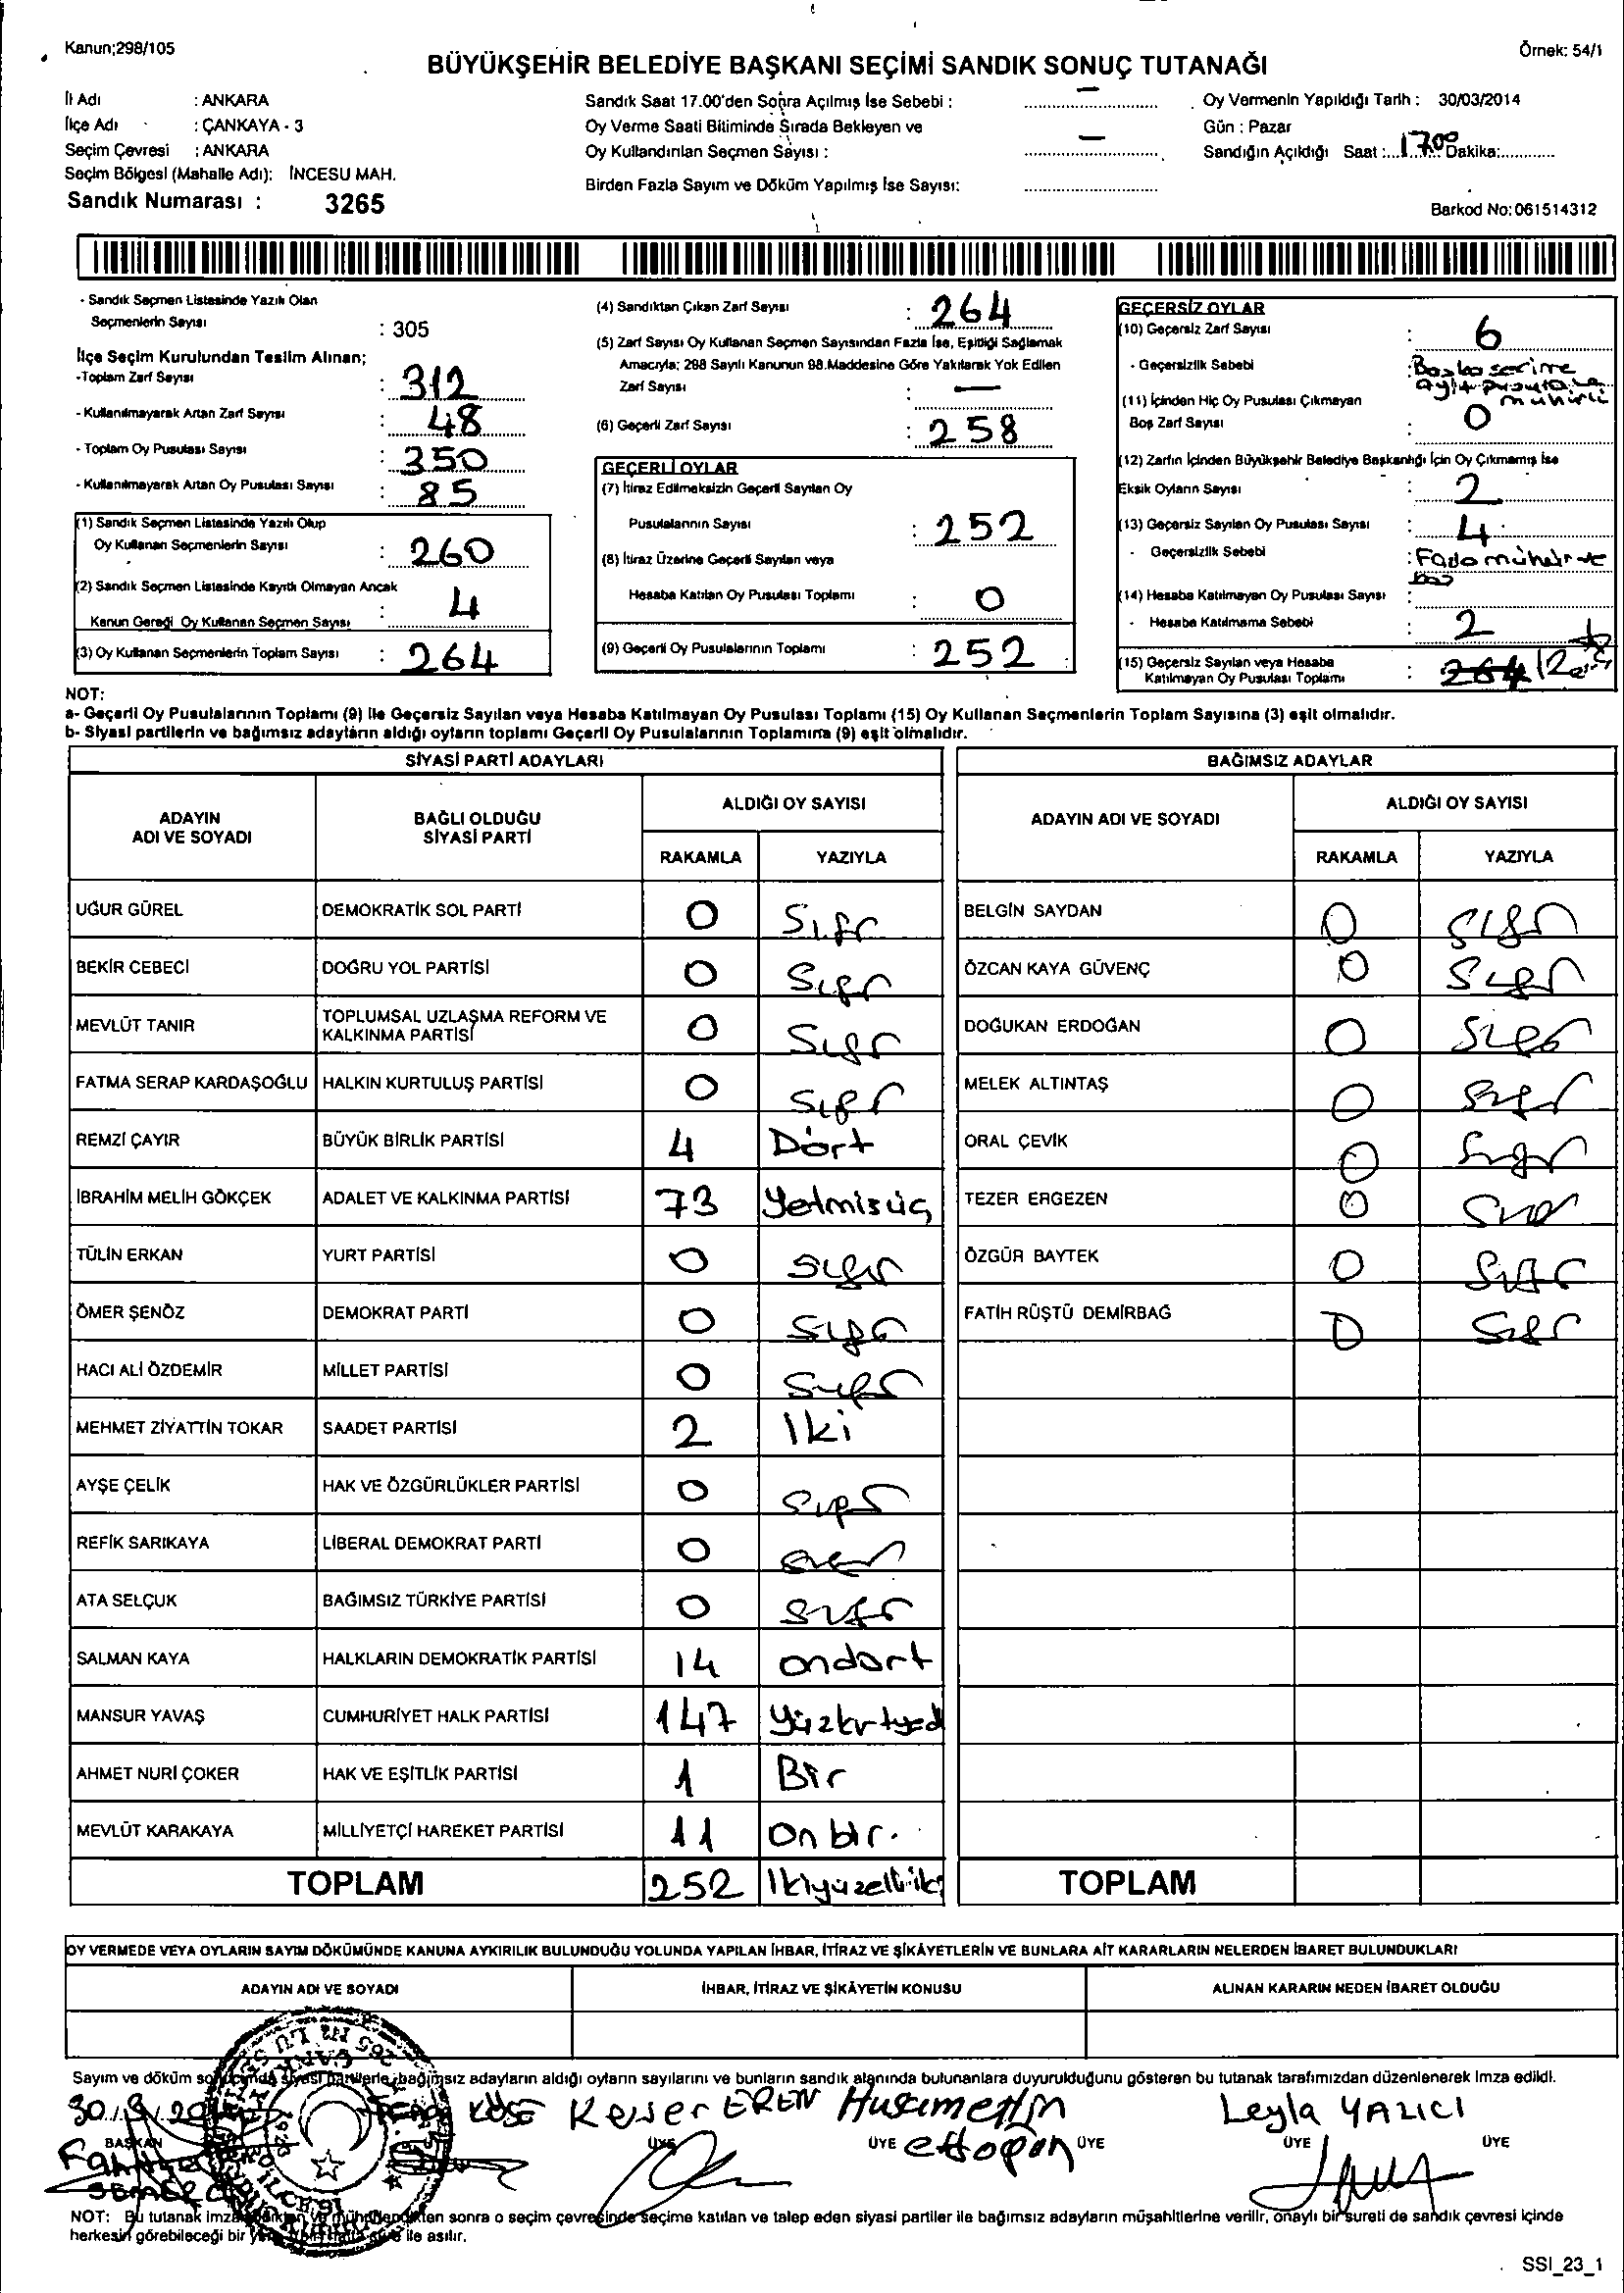 Kanun;298/105
Örnek: 54/1
BÜYÜKŞEHİR BELEDİYE BAŞKANI SEÇİMİ SANDIK SONUÇ TUTANAĞI
İl Adı : ANKARA
İlçe Adı : ÇANKAYA - 3
Seçim Çevresi : ANKARA
Seçim Bölgesi (Mahalle Adı): İNCESU MAH.
Sandık Numarası : 3265
Sandık Saat 17.00'den Sonra Açılmış İse Sebebi : —
Oy Verme Saati Bitiminde Sırada Bekleyen ve
Oy Kullandırılan Seçmen Sayısı : —
Birden Fazla Sayım ve Döküm Yapılmış İse Sayısı:
Oy Vermenin Yapıldığı Tarih : 30/03/2014
Gün : Pazar
Sandığın Açıldığı Saat :...17.00 Dakika:............
Barkod No:061514312
- Sandık Seçmen Listesinde Yazılı Olan
Seçmenlerin Sayısı : 305
İlçe Seçim Kurulundan Teslim Alınan;
-Toplam Zarf Sayısı : 312
- Kullanılmayarak Artan Zarf Sayısı : 48
- Toplam Oy Pusulası Sayısı : 350
- Kullanılmayarak Artan Oy Pusulası Sayısı : 85
(1) Sandık Seçmen Listesinde Yazılı Olup
Oy Kullanan Seçmenlerin Sayısı : 260
(2) Sandık Seçmen Listesinde Kayıtlı Olmayan Ancak
Kanun Gereği Oy Kullanan Seçmen Sayısı : 4
(3) Oy Kullanan Seçmenlerin Toplam Sayısı : 264
(4) Sandıktan Çıkan Zarf Sayısı : 264
(5) Zarf Sayısı Oy Kullanan Seçmen Sayısından Fazla İse, Eşitliği Sağlamak
Amacıyla; 298 Sayılı Kanunun 98.Maddesine Göre Yakılarak Yok Edilen
Zarf Sayısı : —
(6) Geçerli Zarf Sayısı : 258
GEÇERLİ OYLAR
(7) İtiraz Edilmeksizin Geçerli Sayılan Oy
Pusulalarının Sayısı : 252
(8) İtiraz Üzerine Geçerli Sayılan veya
Hesaba Katılan Oy Pusulası Toplamı : 0
(9) Geçerli Oy Pusulalarının Toplamı : 252
GEÇERSİZ OYLAR
(10) Geçersiz Zarf Sayısı : 6
- Geçersizlik Sebebi : Başka seçime
mühürlü
(11) İçinden Hiç Oy Pusulası Çıkmayan
Boş Zarf Sayısı : 0
(12) Zarfın İçinden Büyükşehir Belediye Başkanlığı İçin Oy Çıkmamış İse
Eksik Oyların Sayısı : 2
(13) Geçersiz Sayılan Oy Pusulası Sayısı : 4
- Geçersizlik Sebebi : Fazla mühür ve
boş
(14) Hesaba Katılmayan Oy Pusulası Sayısı :
- Hesaba Katılmama Sebebi : 2
(15) Geçersiz Sayılan veya Hesaba
Katılmayan Oy Pusulası Toplamı : 264 12
NOT:
a- Geçerli Oy Pusulalarının Toplamı (9) ile Geçersiz Sayılan veya Hesaba Katılmayan Oy Pusulası Toplamı (15) Oy Kullanan Seçmenlerin Toplam Sayısına (3) eşit olmalıdır.
b- Siyasi partilerin ve bağımsız adayların aldığı oyların toplamı Geçerli Oy Pusulalarının Toplamına (9) eşit olmalıdır.
SİYASİ PARTİ ADAYLARI
ADAYIN ADI VE SOYADI
BAĞLI OLDUĞU SİYASİ PARTİ
ALDIĞI OY SAYISI
RAKAMLA YAZIYLA
UĞUR GÜREL DEMOKRATİK SOL PARTİ 0 Sıfır
BEKİR CEBECİ DOĞRU YOL PARTİSİ 0 Sıfır
MEVLÜT TANIR TOPLUMSAL UZLAŞMA REFORM VE KALKINMA PARTİSİ 0 Sıfır
FATMA SERAP KARDAŞOĞLU HALKIN KURTULUŞ PARTİSİ 0 Sıfır
REMZİ ÇAYIR BÜYÜK BİRLİK PARTİSİ 4 Dört
İBRAHİM MELİH GÖKÇEK ADALET VE KALKINMA PARTİSİ 73 Yetmisüç
TÜLİN ERKAN YURT PARTİSİ 0 Sıfır
ÖMER ŞENÖZ DEMOKRAT PARTİ 0 Sıfır
HACI ALİ ÖZDEMİR MİLLET PARTİSİ 0 Sıfır
MEHMET ZİYATTİN TOKAR SAADET PARTİSİ 2 Iki
AYŞE ÇELİK HAK VE ÖZGÜRLÜKLER PARTİSİ 0 Sıfır
REFİK SARIKAYA LİBERAL DEMOKRAT PARTİ 0 Sıfır
ATA SELÇUK BAĞIMSIZ TÜRKİYE PARTİSİ 0 Sıfır
SALMAN KAYA HALKLARIN DEMOKRATİK PARTİSİ 14 ondört
MANSUR YAVAŞ CUMHURİYET HALK PARTİSİ 147 Yüzkırkyedi
AHMET NURİ ÇOKER HAK VE EŞİTLİK PARTİSİ 1 Bir
MEVLÜT KARAKAYA MİLLİYETÇİ HAREKET PARTİSİ 11 On bir.
TOPLAM 252 Ikiyüzelliiki
BAĞIMSIZ ADAYLAR
ADAYIN ADI VE SOYADI
ALDIĞI OY SAYISI
RAKAMLA YAZIYLA
BELGİN SAYDAN 0 Sıfır
ÖZCAN KAYA GÜVENÇ 0 Sıfır
DOĞUKAN ERDOĞAN 0 Sıfır
MELEK ALTINTAŞ 0 Sıfır
ORAL ÇEVİK 0 Sıfır
TEZER ERGEZEN 0 Sıfır
ÖZGÜR BAYTEK 0 Sıfır
FATİH RÜŞTÜ DEMİRBAĞ 0 Sıfır
TOPLAM
OY VERMEDE VEYA OYLARIN SAYIM DÖKÜMÜNDE KANUNA AYKIRILIK BULUNDUĞU YOLUNDA YAPILAN İHBAR, İTİRAZ VE ŞİKÂYETLERİN VE BUNLARA AİT KARARLARIN NELERDEN İBARET BULUNDUKLARI
ADAYIN ADI VE SOYADI
İHBAR, İTİRAZ VE ŞİKÂYETİN KONUSU
ALINAN KARARIN NEDEN İBARET OLDUĞU
Sayım ve döküm sonucunda siyasi partilerle bağımsız adayların aldığı oyların sayılarını ve bunların sandık alanında bulunanlara duyurulduğunu gösteren bu tutanak tarafımızdan düzenlenerek imza edildi.
KÖSE EREN Leyla YAZICI
BAŞKAN ÜYE ÜYE ÜYE ÜYE ÜYE
NOT: Bu tutanak imzalandıktan ve mühürlendikten sonra o seçim çevresinde seçime katılan ve talep eden siyasi partiler ile bağımsız adayların müşahitlerine verilir, onaylı bir sureti de sandık çevresi içinde
herkesin görebileceği bir yere ile asılır.
SSI_23_1